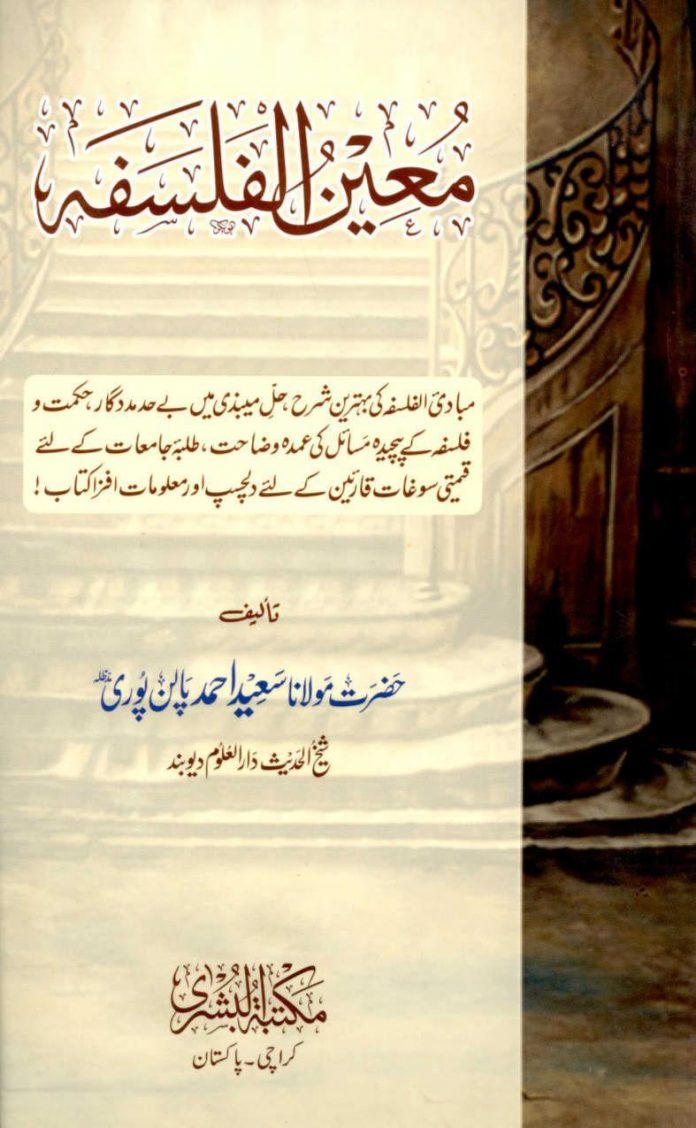 مُعِیْنُ الفَلسَفَہ
مبادئ الفلسفہ کی بہترین شرح، حلِ میبذی میں بے حد مددگار، حکمت و
فلسفہ کے پیچیدہ مَسائل کی عمدہ وضاحت، طلبۂ جامعات کے لئے
قیمتی سوغات قارئین کے لئے دلچسپ اور معلومات افزا کتاب!
تألیف
حضرت مولانا سَعِیْد احمد پالن پُوری مدظلہ
شیخ الحدیث دَارالعلُوم دیوبند
مکتبۃ البُشریٰ
کراچی - پاکستان